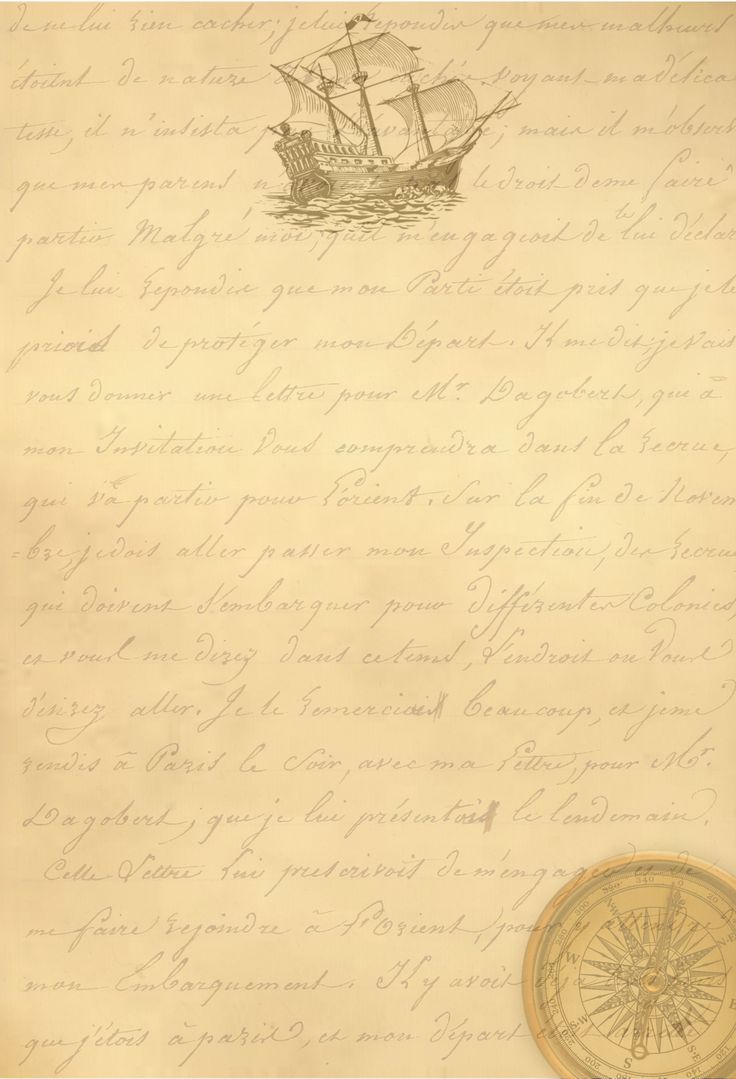 de ne lui rien cacher; je lui repondis que mes malheurs
étoient de nature cachés. voyant ma délica
tesse, il n'insista davantage; mais il m'observ
que mes parens le droit de me faire
partir Malgré moi, qu'il m'engageoit de le lui déclar
Je lui repondis que mon Parti étoit pris que je le
priois de protéger mon Départ. Il me dit; je vais
vous donner une lettre pour Mr. Dagobert, qui à
mon Invitation vous comprendra dans la recrue,
qui va partir pour l'orient. Sur la fin de Novem
=bre, je dois aller passer mon Inspection, des recrue
qui doivent s'embarquer pour différentes Colonies,
et vous me direz dans ce tems, l'endroit ou vous
désirez aller. Je le remerciois beaucoup, et je me
rendis à Paris le soir, avec ma lettre, pour Mr.
Dagobert; que je lui présentois le lendemain.
Cette lettre lui prescrivoit de m'engager et de
me faire rejoindre à l'Orient, pour y attendre
mon Embarquement. Il y avoit déja
que j'étois à paris, et mon départ arreté
340 0 20
320
300
W
N-E
S-W
S-E
S
240
220
200
160
140
120